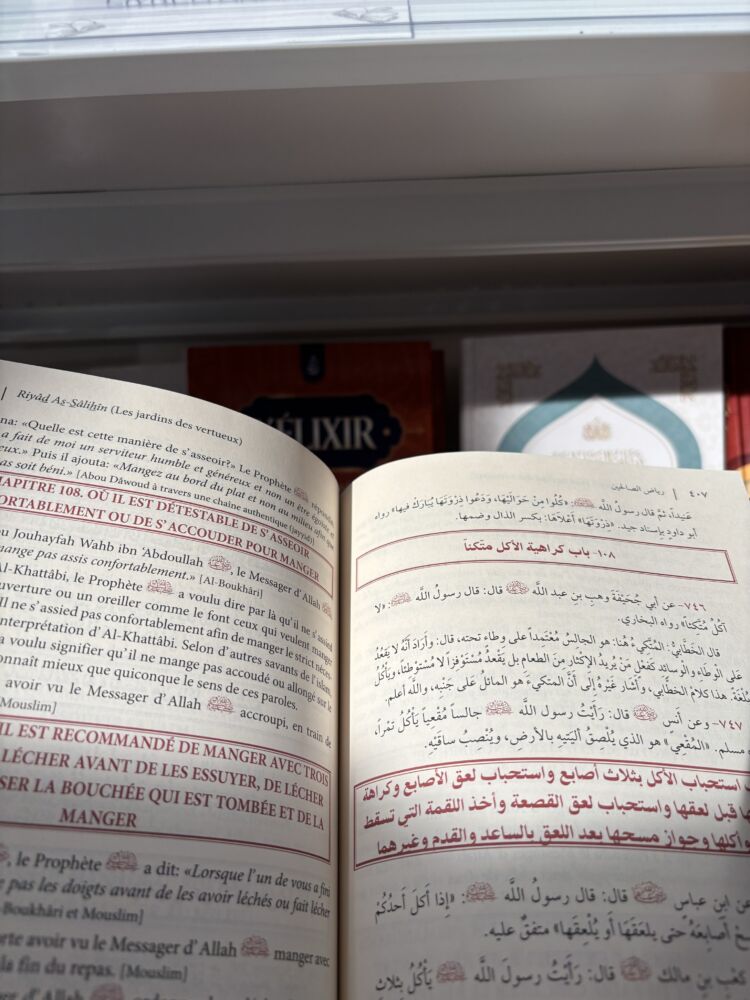 ÉLIXIR
| Riyâḍ Aṣ-Ṣâliḥîn (Les jardins des vertueux)
na: «Quelle est cette manière de s'asseoir?» Le Prophète ﷺ répondit
a fait de moi un serviteur humble et généreux et non un être égoïste et
eux.» Puis il ajouta: «Mangez au bord du plat et non au milieu afin que
as soit béni.» [Abou Dâwoud à travers une chaîne authentique (jayyid)]
HAPITRE 108. OÙ IL EST DÉTESTABLE DE S'ASSEOIR
FORTABLEMENT OU DE S'ACCOUDER POUR MANGER
ou Jouhayfah Wahb ibn 'Abdoullah, le Messager d'Allah ﷺ
mange pas assis confortablement.» [Al-Boukhâri]
Al-Khattâbi, le Prophète ﷺ a voulu dire par là qu'il ne s'assied
uverture ou un oreiller comme le font ceux qui veulent manger
Il ne s'assied pas confortablement afin de manger le strict néces-
interprétation d'Al-Khattâbi. Selon d'autres savants de l'islam,
a voulu signifier qu'il ne mange pas accoudé ou allongé sur le
onnaît mieux que quiconque le sens de ces paroles.
avoir vu le Messager d'Allah ﷺ accroupi, en train de
Mouslim]
IL EST RECOMMANDÉ DE MANGER AVEC TROIS
LÉCHER AVANT DE LES ESSUYER, DE LÉCHER
SER LA BOUCHÉE QUI EST TOMBÉE ET DE LA
MANGER
, le Prophète ﷺ a dit: «Lorsque l'un de vous a fini
e pas les doigts avant de les avoir léchés ou fait lécher
Boukhâri et Mouslim]
rte avoir vu le Messager d'Allah ﷺ manger avec
la fin du repas. [Mouslim]
r d'Allah ﷺ
٤٠٧ | رياض الصالحين
عَنِيدَةً، ثمَّ قال رسولُ اللَّه ﷺ: «كُلُوا مِنْ حَوَالَيْهَا، وَدَعُوا ذِرْوَتَهَا يُبَارَكْ فيها» رواه
أبو داودٍ بإسنادٍ جيد. «ذِرْوَتَهَا» أعْلاهَا: بكسر الذال وضمها.
١٠٨- باب كراهية الأكل متكئاً
٧٤٦- عن أبي جُحَيْفَةَ وهبِ بنِ عبد اللَّه قال: قال رسولُ اللَّه ﷺ: «لا
آكُلُ مُتَّكئاً» رواه البخاري.
قال الخَطَّابيُّ: المُتَّكِيءُ هُنا: هو الجالِسُ مُعْتَمِداً على وِطاءٍ تحته، قال: وأَرَادَ أَنَّهُ لا يَقْعُدُ
عَلى الوِطَاءِ والوسائِدِ كَفِعْلِ مَنْ يُرِيدُ الإكْثارَ مِنَ الطعام بل يَقْعُدُ مُسْتَوْفِزاً لا مُسْتَوْطِئاً، ويَأْكُلُ
بُلْغَةً. هذا كلامُ الخطَّابي، وأشَارَ غَيْرُهُ إِلى أَنَّ المتكيءَ هو المائلُ عَلى جَنْبِه، واللَّه أعلم.
٧٤٧- وعن أنسٍ قال: رَأَيْتُ رسول اللَّه ﷺ جالساً مُقْعِياً يَأْكُلُ تمْراً،
مسلم. «المُقْعِي» هو الذي يُلْصِقُ ألْيَتَيهِ بالأرضِ، ويُنْصِبُ ساقَيْهِ.
استحباب الأكل بثلاث أصابع واستحباب لعق الأصابع وكراهة
قبل لعقها واستحباب لعق القصعة وأخذ اللقمة التي تسقط
وأكلها وجواز مسحها بعد اللعق بالساعد والقدم وغيرهما
عن ابن عباسٍ قال: قال رسولُ اللَّه ﷺ: «إذا أَكلَ أَحدُكُمْ
أَصابِعَهُ حتى يلعَقَهَا أو يُلْعِقَها» متفقٌ عليه.
كعْبِ بن مالك قال: رَأَيْتُ رسولَ اللَّه ﷺ يَأْكُلُ بثلاثِ